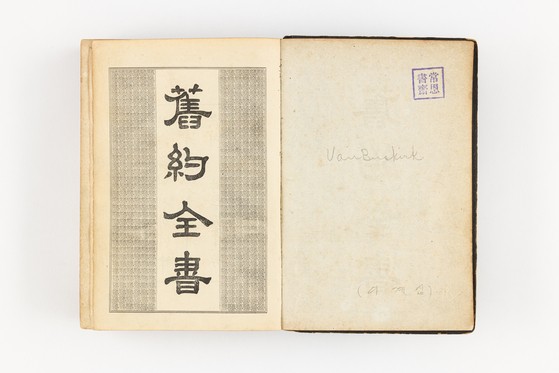 舊約全書
書齋
VanBuskirk